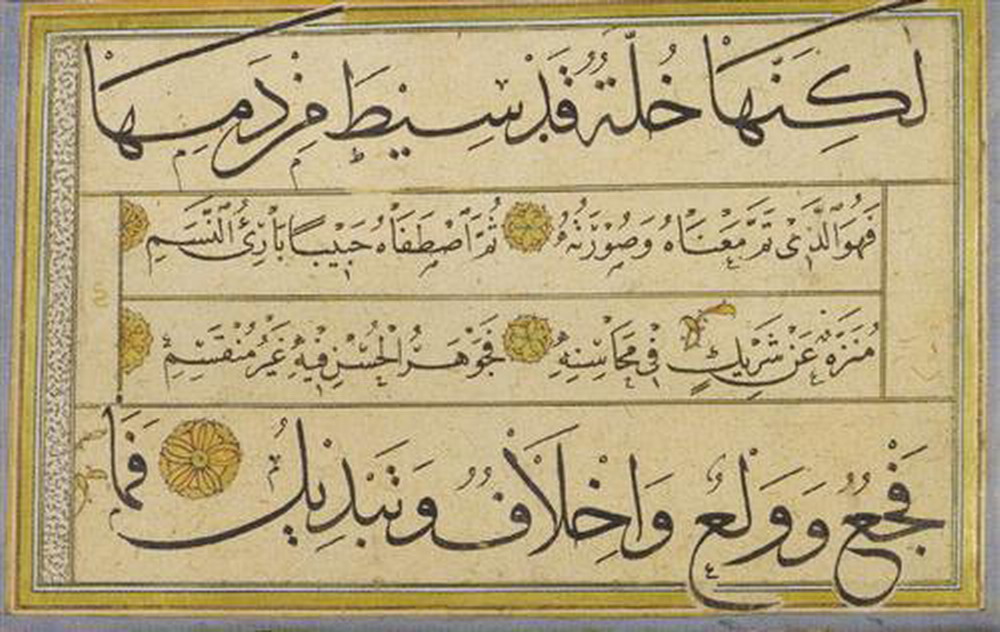 لٰكِنَّهَا خُلَّةٌ قَدْ سِيْطَ مِنْ دَمِهَا
فَهُوَ الَّذِى تَمَّ مَعْنَاهُ وَصُوْرَتُهُ ثُمَّ اصْطَفَاهُ حَبِيْبًا بَارِئُ النَّسَمِ
مُنَزَّهٌ عَنْ شَرِيْكٍ فِى مَحَاسِنِهِ فَجَوْهَرُ الْحُسْنِ فِيْهِ غَيْرُ مُنْقَسِمِ
فَجْعٌ وَوَلْعٌ وَاِخْلَافٌ وَتَبْدِيْلُ فَمَا